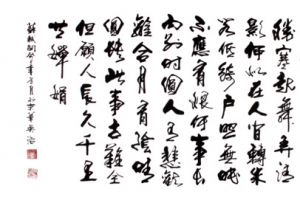 勝寒起舞弄清
影何似在人间轉朱
阁低绮户照無眠
不應有恨何事長
向别时圆人有悲歡
離合月有陰晴
圆缺此事古難全
但願人長久千里
共嬋娟
蘇軾詞